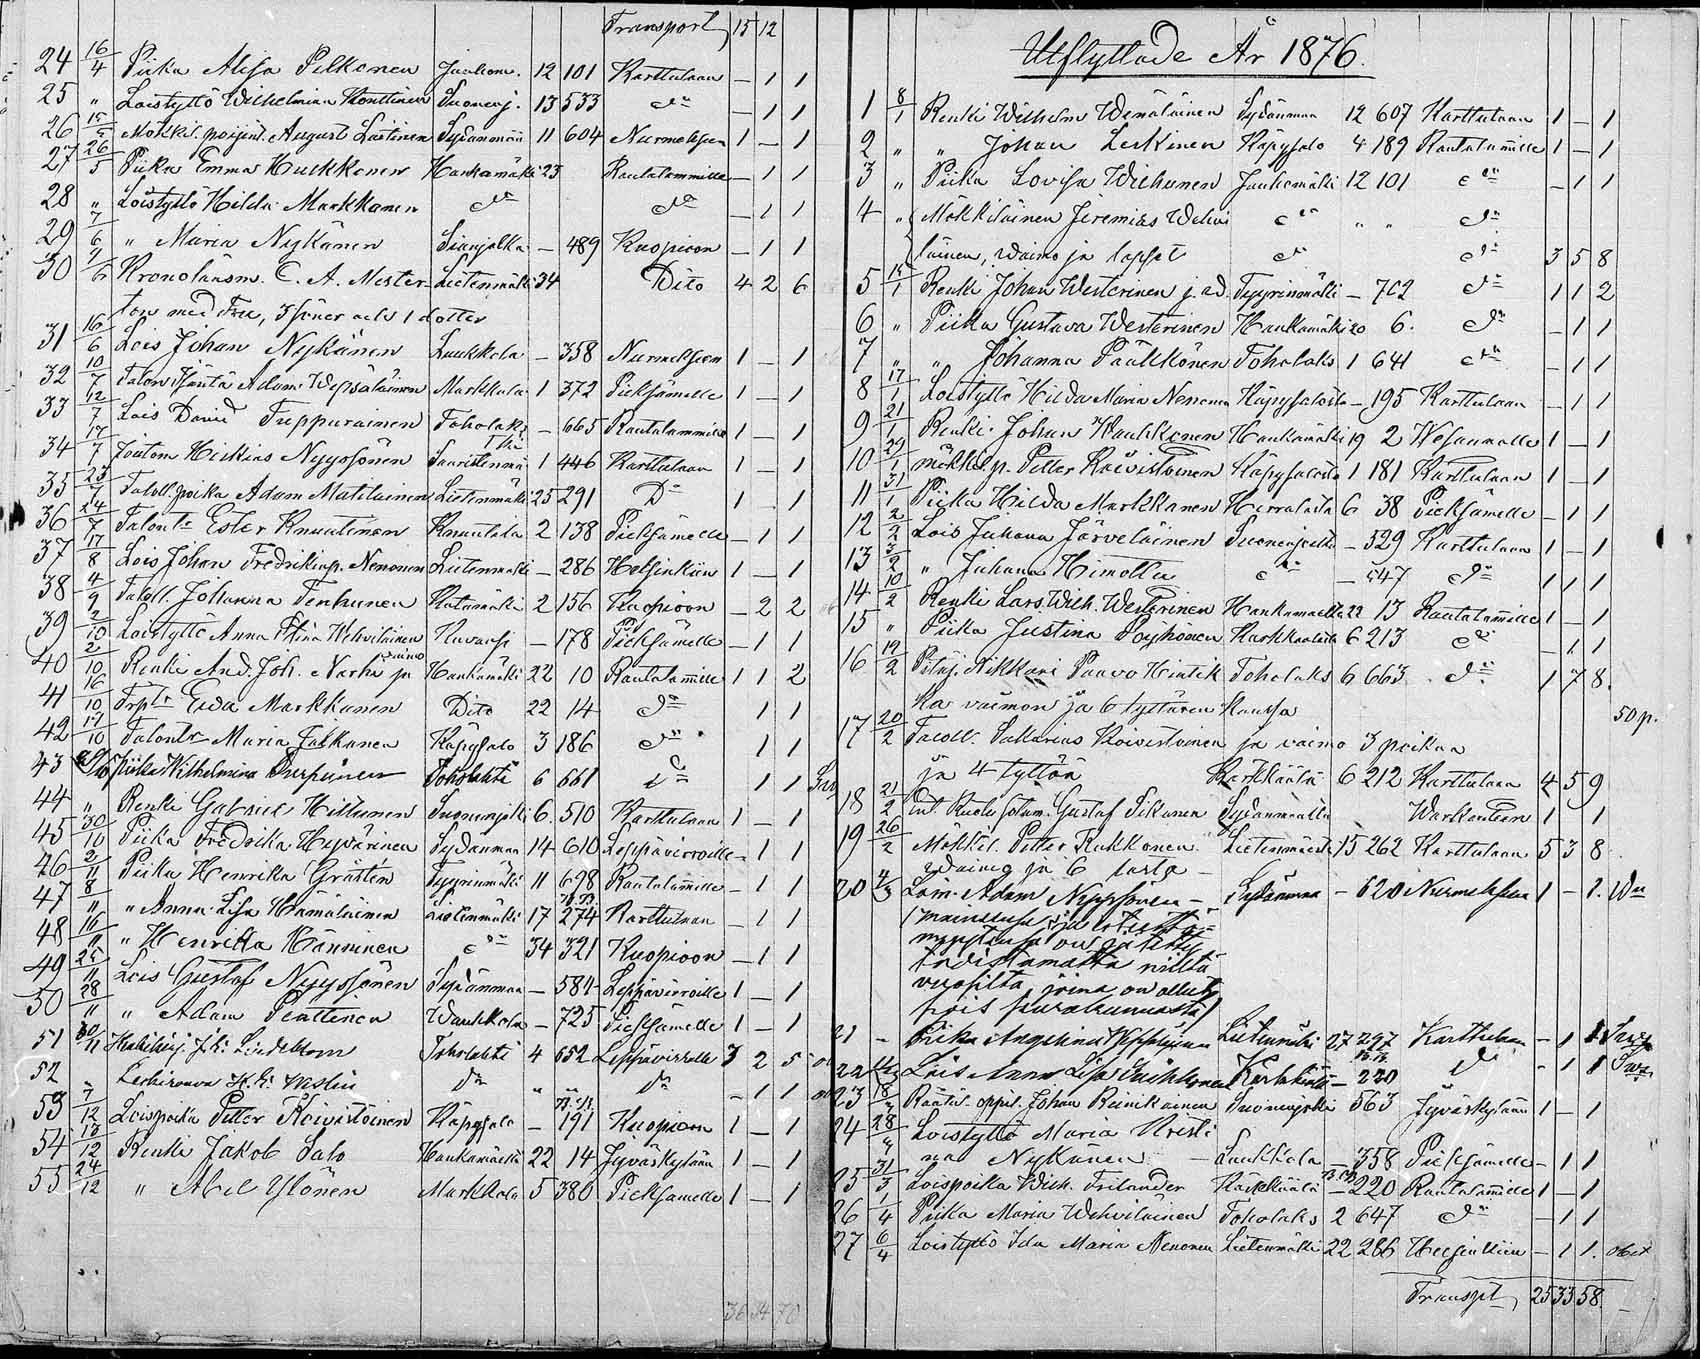 Transport 15 12
24 16/4 Piika Alisa Pelkonen Jauhom. 12 101 Karttulaan — 1 1
25 " Loistyttö Wilhelmina Konttinen Suonenj. 13 533 do — 1 1
26 15/5 Mökkil. poijint. August Laitinen Sydänmaa 11 604 Nurmeksen 1 — 1
27 26/5 Piika Emma Hukkonen Hankamäki 23 Rautalammille — 1 1
28 " Loistyttö Hilda Markkanen do do — 1 1
29 7/6 " Maria Nykänen Sianjalka — 489 Kuopioon — 1 1
30 Kronolänsm. C. A. Mester- Lietenmäki 34 Dito 4 2 6
ton med Fru, 3 söner och 1 dotter
31 16/6 Lois Johan Nykänen Luukkola — 358 Nurmeksen 1 — 1
32 10/7 Talon Isäntä Adam Wepsäläinen Markkala 1 372 Pieksämelle 1 — 1
33 12/7 Lois David Tuppurainen Toholaks — 665 Rautalammille 1 — 1
34 17/7 Joutom Hiskias Nyyssönen 1 446 Karttulaan 1 — 1
35 23/7 Taloll. poika Adam Matilainen Lietenmäki 25 291 Do 1 — 1
36 24/7 Talontr Ester Knuutinen Knuutila 2 138 Pieksämelle — 1 1
37 17/8 Lois Johan Fredrikinp. Nenonen Lietenmäki — 286 Helsinkiin 1 — 1
38 4/9 Taloll. Johanna Tenhunen Kutumäki 2 156 Kuopioon — 2 2
39 2/10 Loistyttö Anna Stina Wehviläinen Kuvansi — 178 Pieksämelle — 1 1
40 2/10 Renki And. Joh. Narhi ja vaimo Hankamäki 22 10 Rautalamille 1 1 2
41 16/10 Trptr Eva Markkanen Dito 22 14 do 1 1
42 17/10 Talontr Maria Jalkanen Käpysalo 3 186 do 1 1
43 Piika Wilhelmina Toholahti 6 661 do 1 1
44 " Renki Gabriel Hiltunen Suonenjoki 6 510 Karttulaan 1 — 1
45 30/10 Piika Fredrika Hyvärinen Sydänmaa 14 610 Leppävirroille — 1 1
46 2/11 Piika Henrika Gråstén Tyyrinmäki 11 698 Rautalamille — 1 1
47 8/11 " Anna Lisa Hämäläinen Lietenmäki 17 274 Karttulaan — 1 1
48 16/11 " Henrikka Hänninen do 34 321 Kuopioon — 1 1
49 25/11 Lois Gustaf Nyyssönen Sydänmaa — 584 Leppävirroille 1 — 1
50 28/11 " Adam Wauhkola — 725 Pieksämelle 1 — 1
51 30/11 Lindeblom Toholahti 4 652 Leppävirralle 3 2 5
52 " do " " do — 1 1
53 7/12 Loispoika Petter Koivistoinen Käpysalo — 191 Kuopioon 1 — 1
54 13/12 Renki Jakob Salo Hankamäeltä 22 14 Jyväskylään 1 — 1
55 24/12 " Abel Ylönen Markkala 5 380 Pieksämelle 1 — 1
36 34 70
Utflyttade År 1876.
1 8/1 Renki Wilhelm Wenäläinen Sydänmaa 12 607 Karttulaan 1 — 1
2 " " Johan Leskinen Käpysalo 4 189 Rautalammille 1 — 1
3 " Piika Lovisa Wiehunen Jauhomäki 12 101 do — 1 1
4 " Mökkiläinen Jeremias Wehvi do " " do
läinen, waimo ja lapset do do 3 5 8
5 14/1 Renki Johan Westerinen j. ad. Tyyrinmäki — 702 do 1 1 2
6 " Piika Gustava Westerinen Hankamäki 20 6 do — 1 1
7 " " Johanna Päälkkönen Toholaks 1 641 do — 1 1
8 17/1 Loistyttö Hilda Maria Nenonen Käpysalosta — 195 Karttulaan — 1 1
9 21/1 Renki Johan Haukkonen Hankamäki 19 2 Wesanmalle 1 — 1
10 29/1 mökkil p. Petter Koivistoinen Käpysalosta 1 181 Karttulaan 1 — 1
11 31/1 Piika Hilda Markkanen Herralasta 6 38 Pieksämelle — 1 1
12 2/2 Lois Juhana Järveläinen Suonenjoelta — 529 Karttulaan 1 — 1
13 3/2 " Juhana Himottu do — 547 do 1 1 1
14 10/2 Renki Lars. Wilh. Westerinen Hankamaelta 23 13 Rautalamille 1 — 1
15 " Piika Justina Pöyhönen Karkkaalasta 6 213 do — 1 1
16 19/2 Pitäj. Nikkari Paavo Hintik Toholaks 6 663 do 1 7 8
ka vaimon ja 6 tyttären kanssa 50 p.
17 20/2 Taloll. Sakarias Koivistoinen ja vaimo 3 poikaa
ja 4 tyttöä Karkkäälä 6 212 Karttulaan 4 5 9
18 21/2 Gustaf Tikanen Sydänmaalta Warkauteen 1 1
19 26/2 Mökkil. Petter Kukkonen Lietenmäestä 15 262 Karttulaan 5 3 8
vaimo ja 6 lasta —
20 4/3 Lois. Adam Nyyssönen — Sydänmaa — 620 Nurmeksen 1 — 1
on
todistamatta niiltä
vuosilta, joina on ollut
pois seurakunnasta
21 — Piika Angelina Lietenmäki 27 297 Karttulaan — 1 1
22 Lois Anna Lisa — 220 do — 1 1
23 18/3 Räätäl. oppil. Johan Reinikainen Suonenjoki 563 Jyväskylään 1 — 1
24 28/3 Loistyttö Maria Kristi
na Nykänen Luukkola — 358 Pieksämelle — 1 1
25 31/3 Loispoika Wilh. Frilander Kärkkäälä — 220 Rautalamille 1 — 1
26 1/4 Piika Maria Wehviläinen Toholaks 2 647 do — 1 1
27 6/4 Loistyttö Ida Maria Nenonen Lietenmäki 22 286 Helsinkiin — 1 1
Transpt 25 33 58